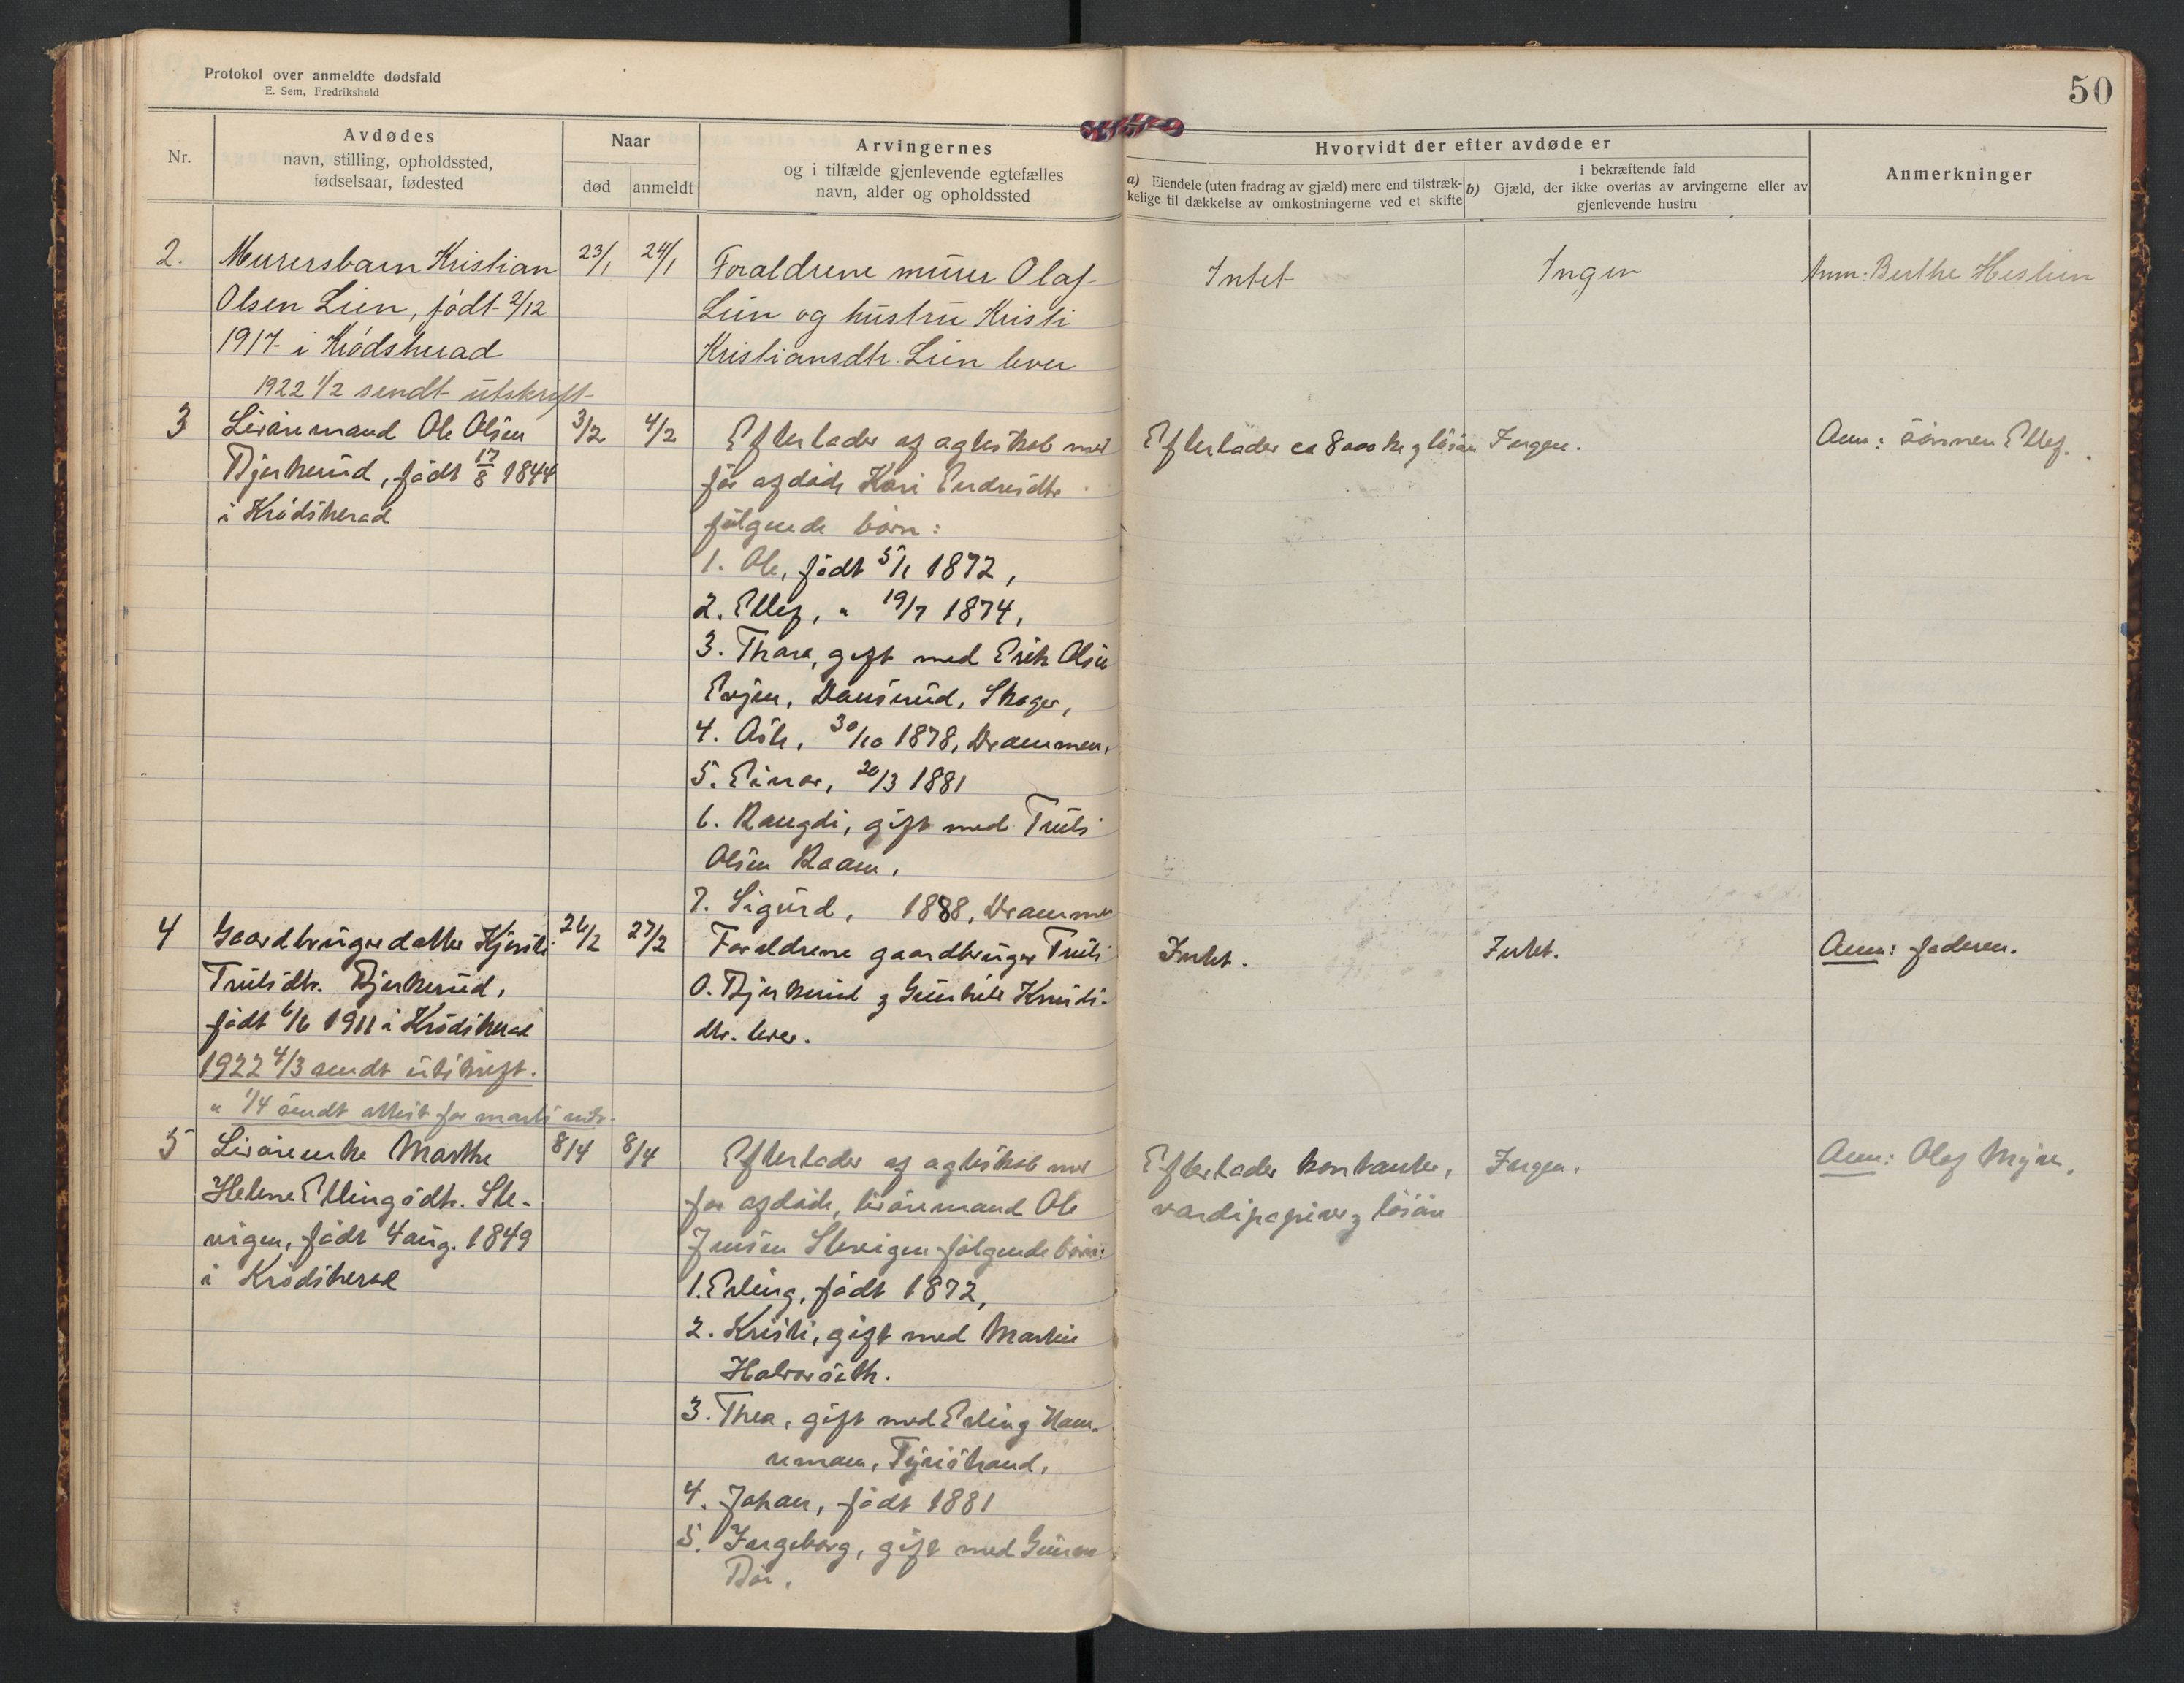 Protokol over anmeldte dødsfald
E. Sem, Fredrikshald
50
Nr.
Avdødes
navn, stilling, opholdssted,
fødselsaar, fødested
Naar
død
anmeldt
Arvingernes
og i tilfælde gjenlevende egtefælles
navn, alder og opholdssted
Hvorvidt der efter avdøde er
a) Eiendele (uten fradrag av gjæld) mere end tilstræk-
kelige til dækkelse av omkostningerne ved et skifte
i bekræftende fald
b) Gjæld, der ikke overtas av arvingerne eller av
gjenlevende hustru
Anmerkninger
2.
Murersbarn Kristian
Olsen Lien, født 2/12
1917 i Krødsherad
1922 1/2 sendt utskrift
23/1
24/1
Foraldrene murer Olaf
Lien og hustru Kristi
Kristiansdtr. Lien lever
Intet
Ingen
Anm: Berthe Heslien
3
Livøremand Ole Olsen
Bjerkerud, født 17/8 1844
i Krødsherad
3/2
4/2
Efterlader af agteskab med
før afdøde Kari Endresdtr
følgende børn:
1. Ole, født 5/1 1872,
2. Ellef, " 19/7 1874,
3. Thora, gift med Erik Olsen
Evjen, Dansrud, Skoger,
4. Asle, 30/10 1878, Drammen,
5. Einar, 20/3 1881
6. Rangdi, gift med Truls
Olsen Raaen,
7. Sigurd, 1888, Drammen
Efterlader ca 8000 kr g løsøre
Ingen.
Anm: sønnen Ellef.
4
Gaardbrugerdatter Kjersti
Trulsdtr. Bjerkerud,
født 6/6 1911 i Krødsherad
1922 4/3 sendt utskrift.
" 1/4 sendt attest for marts mdr.
26/2
27/2
Foraldrene gaardbruger Truls
O. Bjerkerud g Gunhild Knuds-
dtr. lever.
Intet.
Intet.
Anm: faderen.
5
Livøreenke Marthe
Helene Ellingsdtr. Sle-
vigen, født 4 aug. 1849
i Krødsherad
8/4
8/4
Efterlader af agteskab med
før afdøde, livøremand Ole
Jensen Slevigen følgende børn:
1. Erling, født 1872,
2. Kristi, gift med Martin
Halvorseth.
3. Thea, gift med Erling Ham-
remoen, Tyristrand,
4. Johan, født 1881
5. Ingeborg, gift med Gunnar
Bøe.
Efterlader kontanter,
vardipapirer g løsøre
Ingen.
Anm: Olaf Myre.